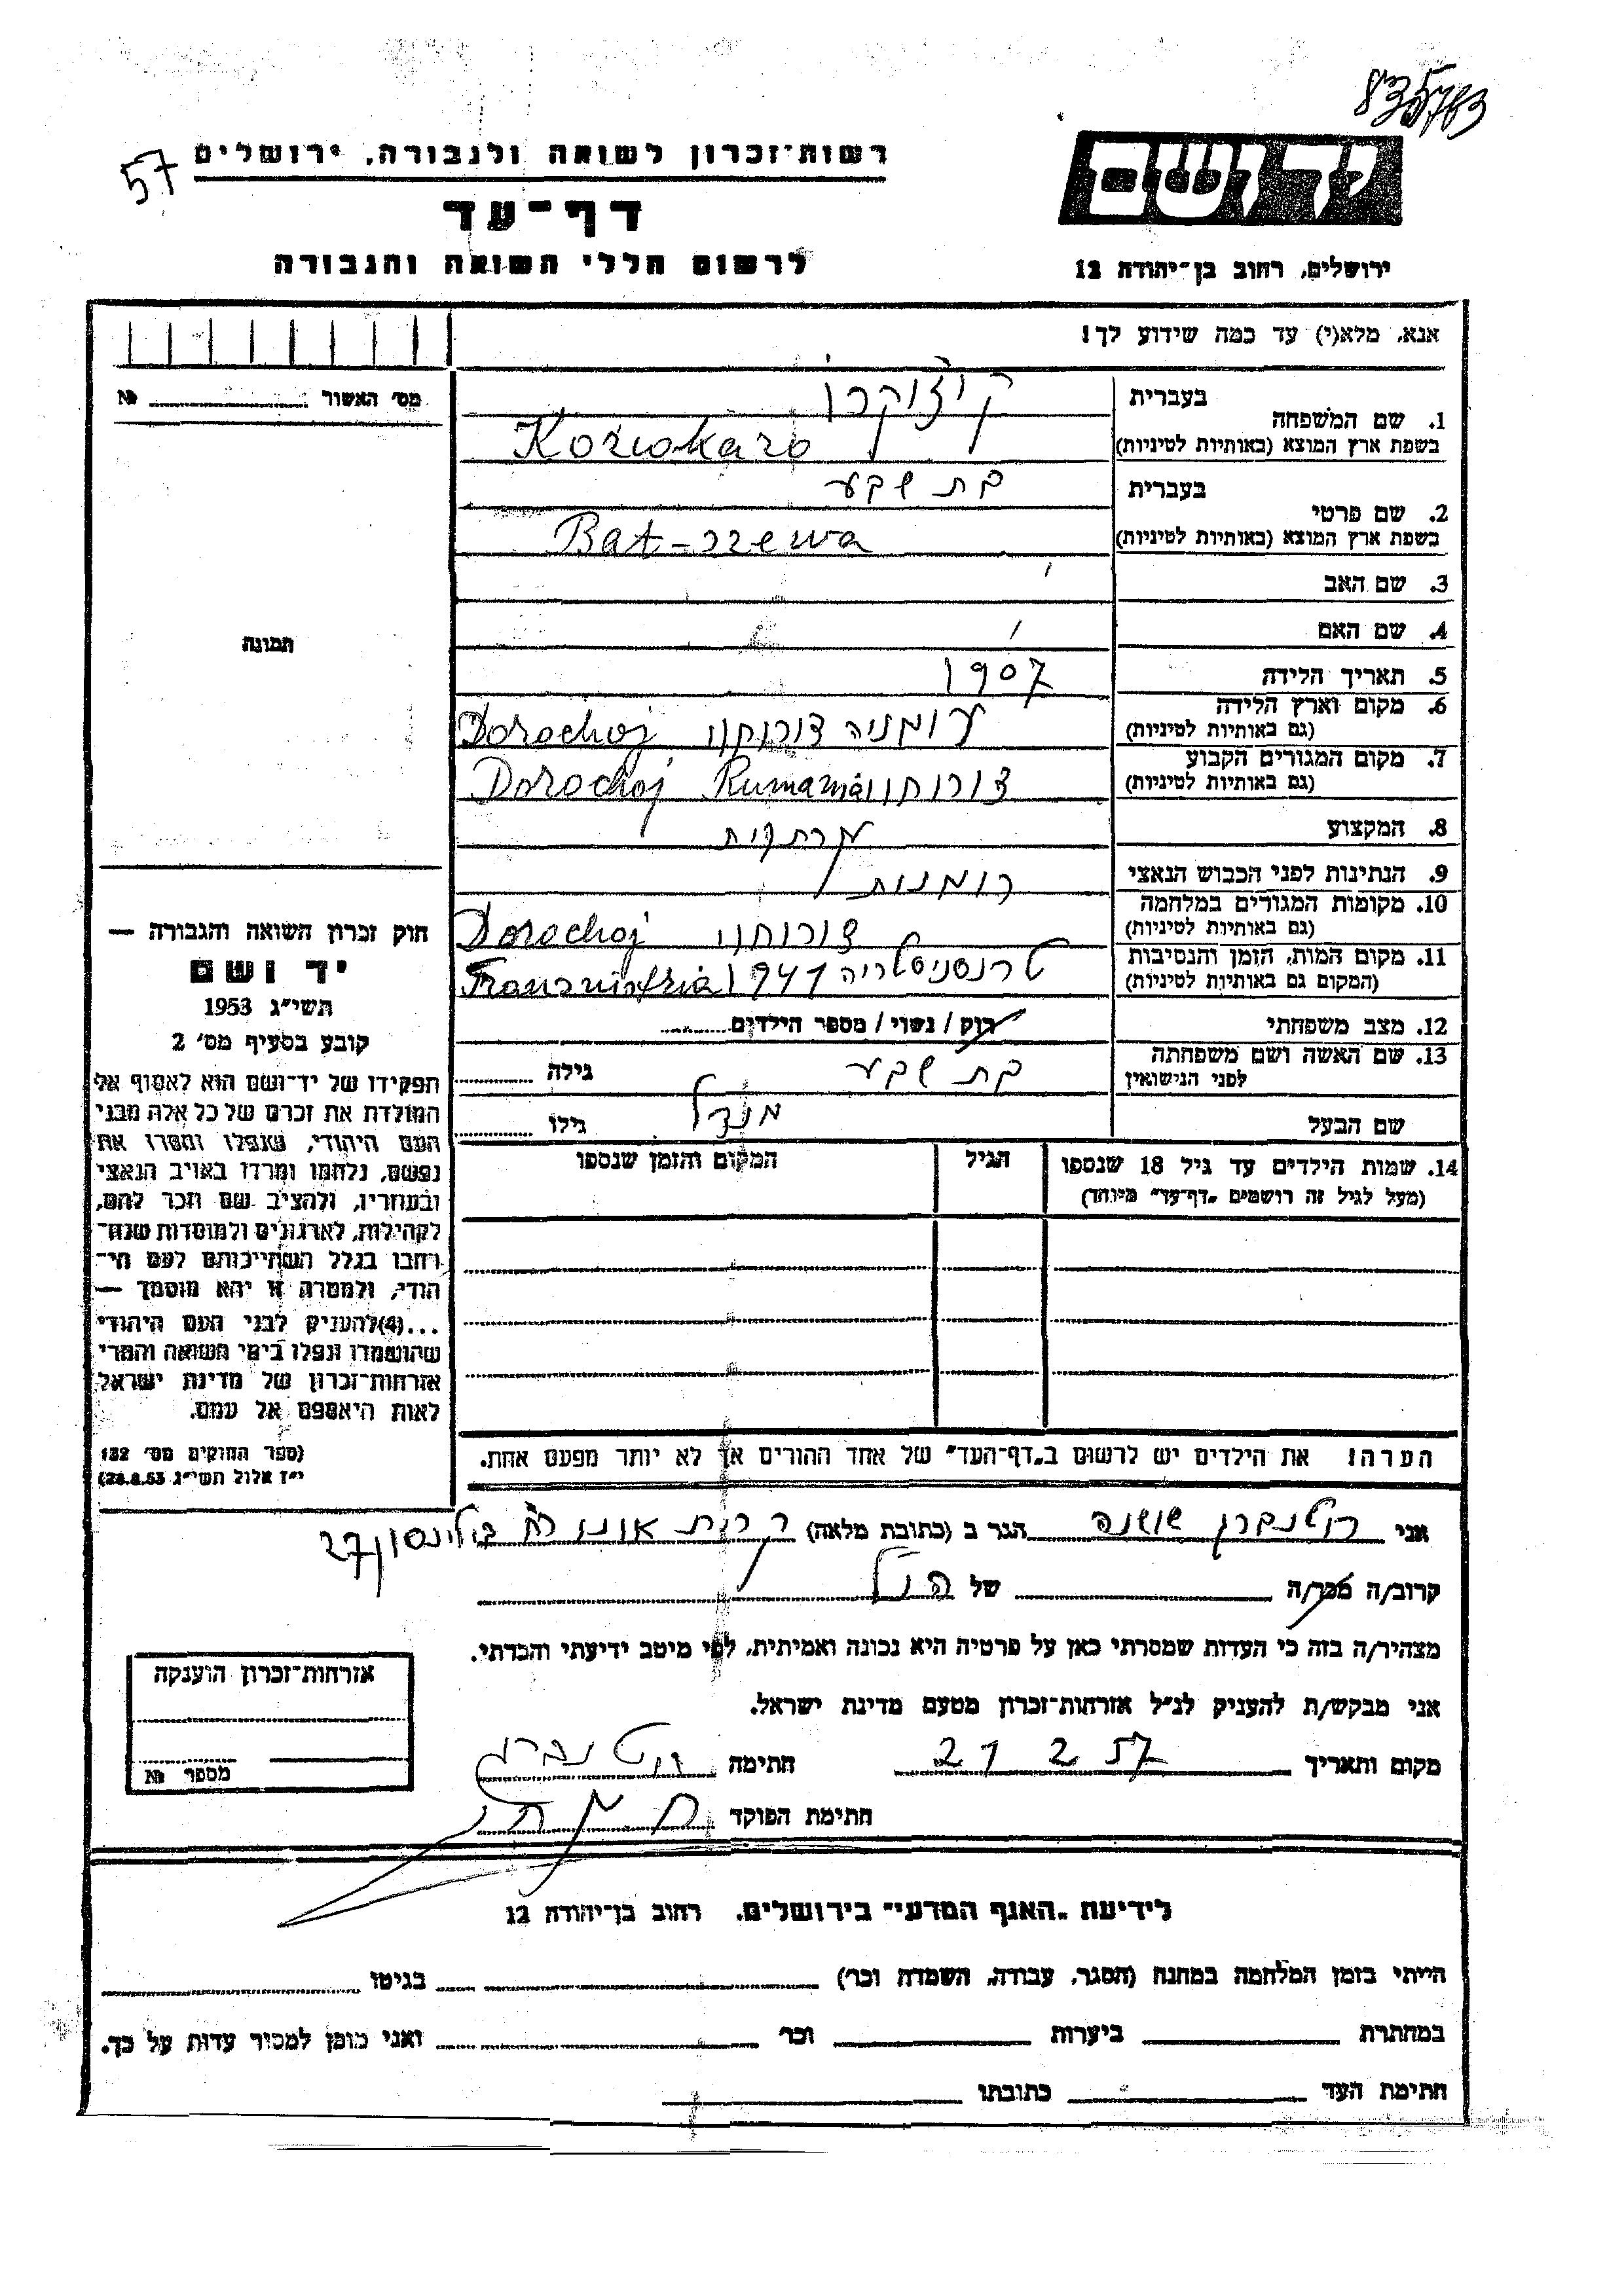 835783
57
רשות־זכרון לשואה ולגבורה, ירושלים
יד ושם
דף־עד
לרשום חללי השואה והגבורה
ירושלים, רחוב בן־יהודה 12
אנא, מלא(י) עד כמה שידוע לך!
מס׳ האשור № 
בעברית
1. שם המשפחה
בשפת ארץ המוצא (באותיות לטיניות) Koziokaro
בעברית בת שבע
2. שם פרטי
בשפת ארץ המוצא (באותיות לטיניות) Bat-szewa
3. שם האב
4. שם האם
תמונה
5. תאריך הלידה 1907
6. מקום וארץ הלידה
(גם באותיות לטיניות) רומניה דורוחוי Dorochoj
7. מקום המגורים הקבוע
(גם באותיות לטיניות) דורוחוי Dorochoj Rumania
8. המקצוע
9. הנתינות לפני הכבוש הנאצי רומנית
10. מקומות המגורים במלחמה
(גם באותיות לטיניות) דורוחוי Dorochoj
11. מקום המות, הזמן והנסיבות
(המקום גם באותיות לטיניות) טרנסניסטריה 1941 Transnistria
12. מצב משפחתי רוק / נשוי / מספר הילדים
13. שם האשה ושם משפחתה
לפני הנישואין בת שבע גילה
שם הבעל מנדל גילו
14. שמות הילדים עד גיל 18 שנספו הגיל המקום והזמן שנספו
(מעל לגיל זה רושמים „דף־עד״ מיוחד)
חוק זכרון השואה והגבורה —
יד ושם
תשי״ג 1953
קובע בסעיף מס׳ 2
תפקידו של יד־ושם הוא לאסוף אל
המולדת את זכרם של כל אלה מבני
העם היהודי, שנפלו ומסרו את
נפשם, נלחמו ומרדו באויב הנאצי
ובעוזריו, ולהציב שם וזכר להם,
לקהילות, לארגונים ולמוסדות שנח־
רבו בגלל השתייכותם לעם הי־
הודי, ולמטרה זו יהא מוסמך —
...(4)להעניק לבני העם היהודי
שהושמדו ונפלו בימי השואה והמרי
אזרחות־זכרון של מדינת ישראל
לאות היאספם אל עמם.
(ספר החוקים מס׳ 132
י״ז אלול תשי״ג 28.8.53)
הערה! את הילדים יש לרשום ב„דף־העד״ של אחד ההורים אך לא יותר מפעם אחת.
אני רוטנברג שושנה הגר ב (כתובת מלאה) קרית אונו רח בילינסון 27
קרוב/ה מכר/ה של הנ״ל
מצהיר/ה בזה כי העדות שמסרתי כאן על פרטיה היא נכונה ואמיתית, לפי מיטב ידיעתי והכרתי.
אני מבקש/ת להעניק לנ״ל אזרחות־זכרון מטעם מדינת ישראל.
מקום ותאריך 21 2 57 חתימה רוטנברג
חתימת הפוקד
אזרחות־זכרון הוענקה
מספר №
לידיעת „האגף המדעי״ בירושלים, רחוב בן־יהודה 12
הייתי בזמן המלחמה במחנה (הסגר, עבודה, השמדה וכר׳) בגיטו
במחתרת ביערות וכר׳ ואני מוכן למסור עדות על כך.
חתימת העד כתובתו